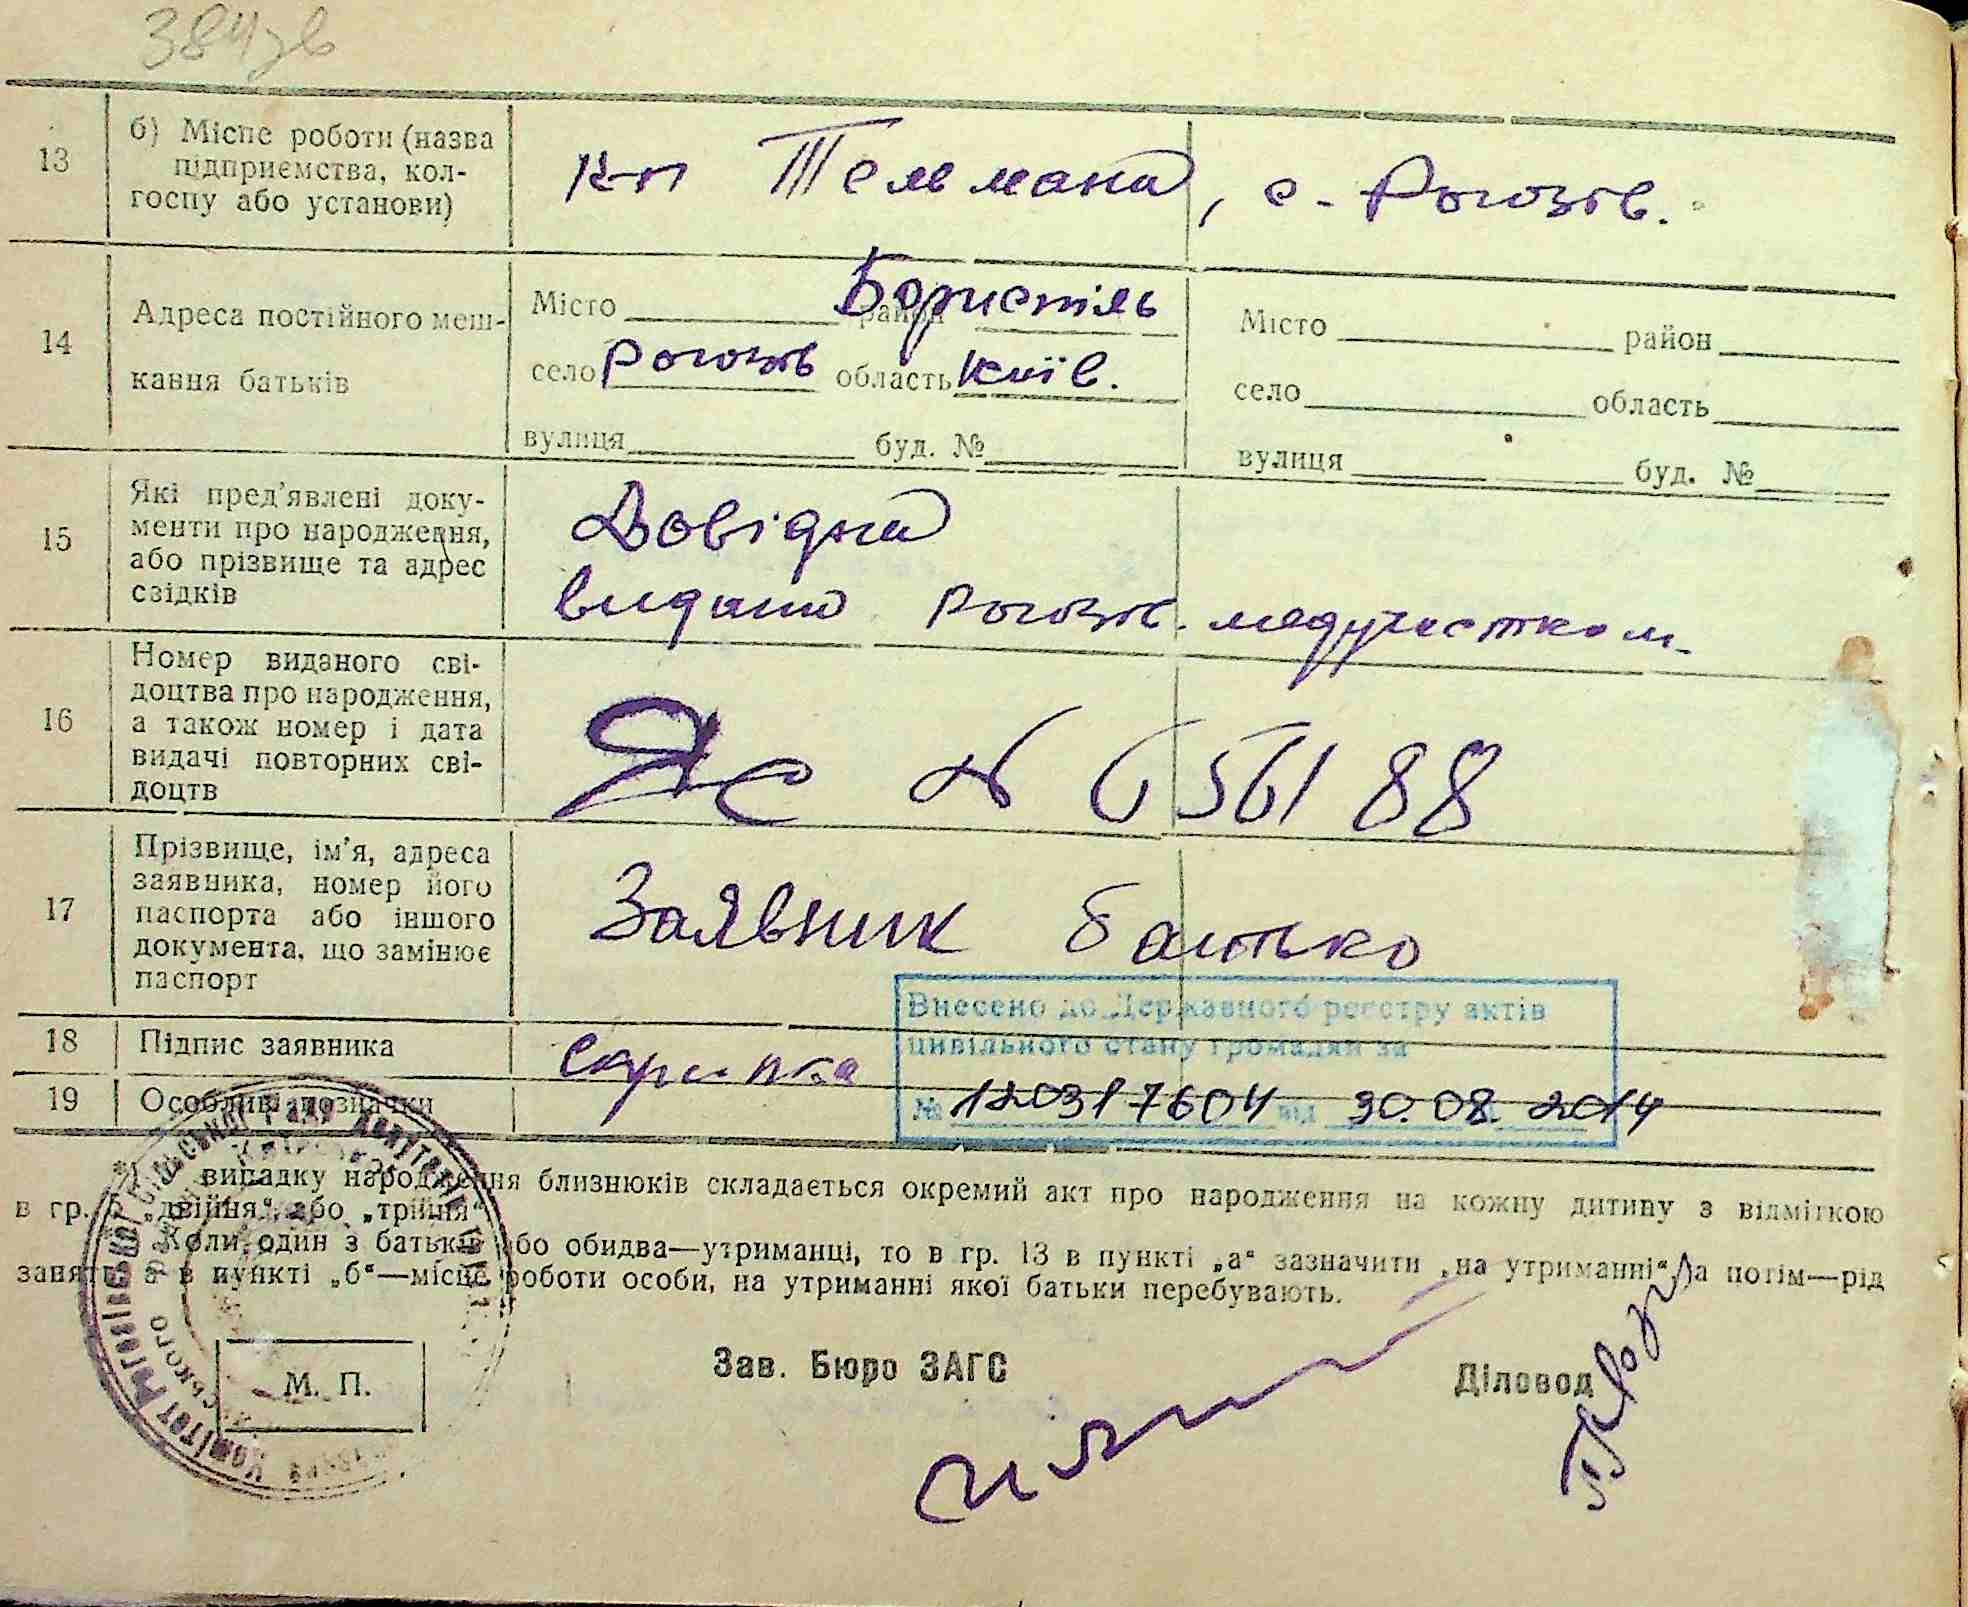 384зв
13 б) Місце роботи (назва
підприємства, кол-
госпу або установи)
к-п Тельмана, с. Рогозів.
14 Адреса постійного меш-
кання батьків
Місто район Бориспіль
село Рогозів область Київ.
вулиця буд. №
Місто район
село область
вулиця буд. №
15 Які пред'явлені доку-
менти про народження,
або прізвище та адрес
свідків
Довідка
видана Рогозів. медучастком
16 Номер виданого сві-
доцтва про народження,
а також номер і дата
видачі повторних сві-
доцтв
ЯС № 656188
17 Прізвище, ім'я, адреса
заявника, номер його
паспорта або іншого
документа, що замінює
паспорт
Заявник батько
18 Підпис заявника
Скрипка
19 Особливі позначки
Внесено до Державного реєстру актів
цивільного стану громадян за
№ 120317604 від 30.08.2014
випадку народження близнюків складається окремий акт про народження на кожну дитину з відміткою
в гр. 5 „двійня“, або „трійня“
Коли один з батьків або обидва—утриманці, то в гр. 13 в пункті „а“ зазначити „на утриманні“, а потім—рід
заняття, а в пункті „б“—місце роботи особи, на утриманні якої батьки перебувають.
Комітет Рогозівської сільської Ради депутатів
М. П.
Зав. Бюро ЗАГС
Діловод